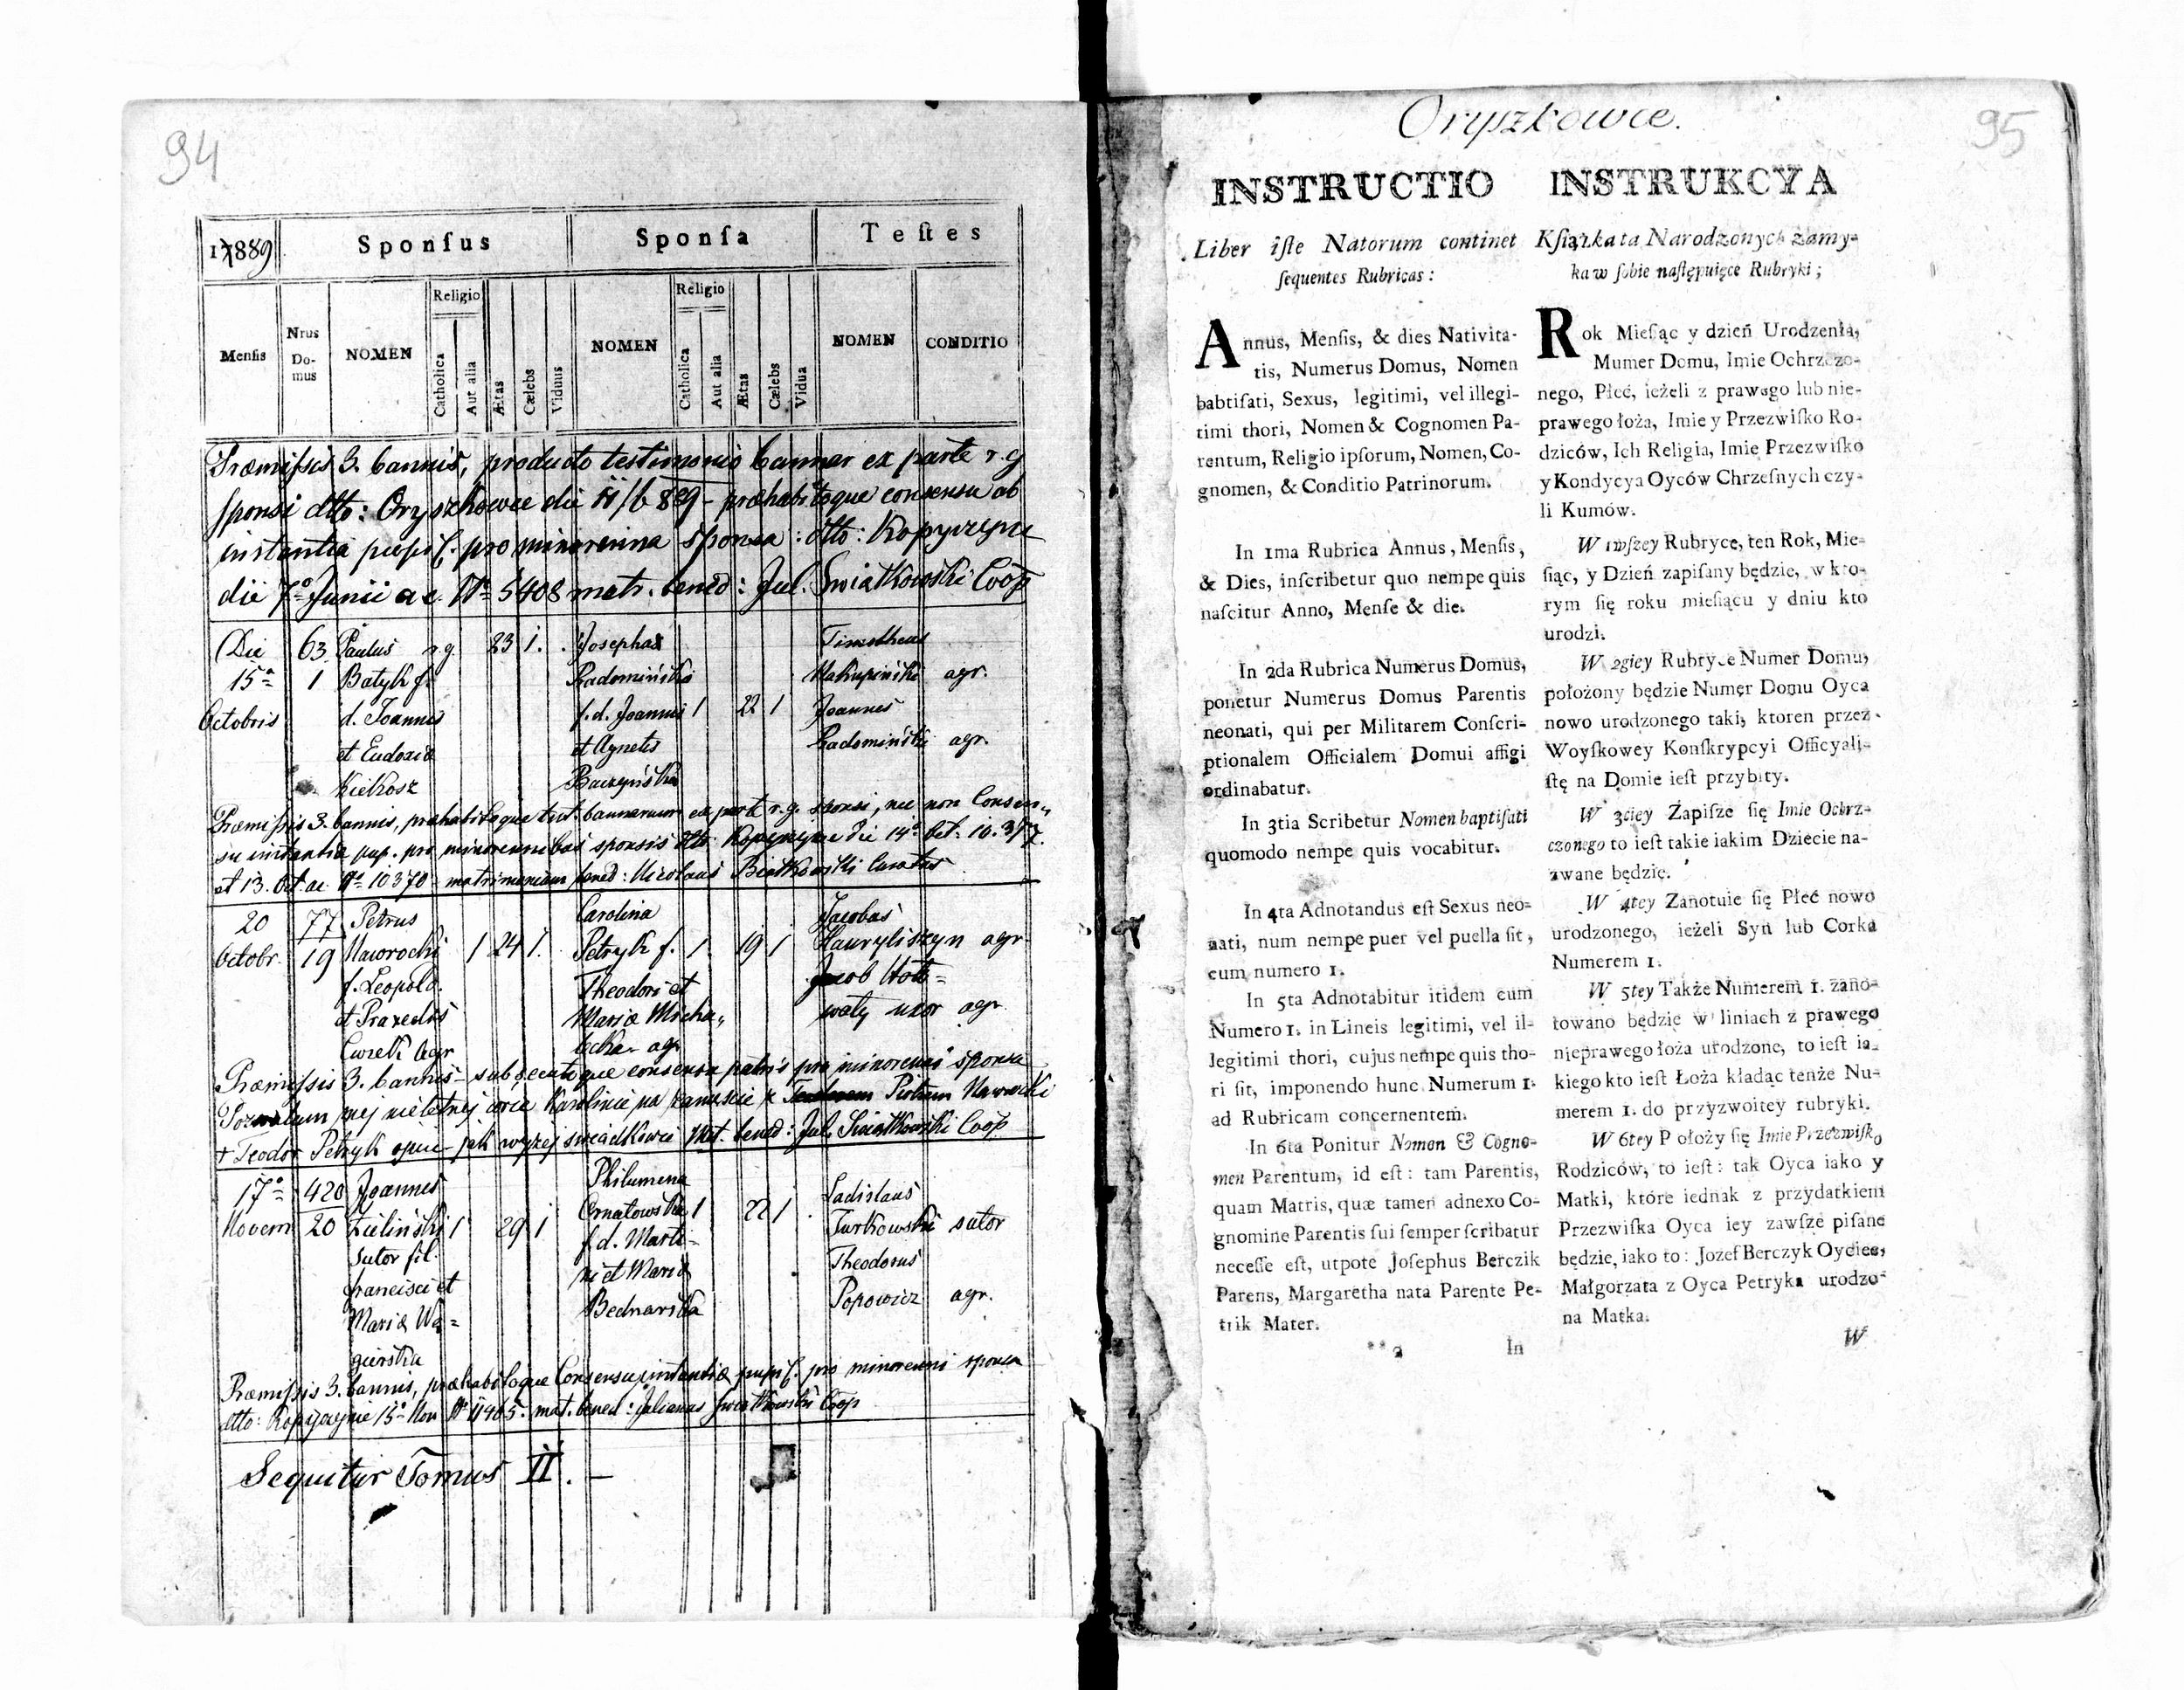 94
17889
Sponſus
Sponſa
Teſtes
Menſis
Nrus Do-mus
NOMEN
Religio
Catholica
Aut alia
Ætas
Cælebs
Viduus
NOMEN
Religio
Catholica
Aut alia
Ætas
Cælebs
Vidua
NOMEN
CONDITIO
Præmiſsis 3. bannis, producto testimonio bannor ex parte r. g
sponsi dtto: Oryszkowce die 11/6 889 – præhabitoque consensu ab
instantia pupil. pro minorenna sponsa: dtto: Kopyczyńce
die 7º Junii a c. Nº 5408 matr. bened: Jul. Świątkowski Coop
Die 63 Paulus r.g. 23 1. Josepha Timotheus
15ª 1 Batyk f. Radomińska Makupiński agr.
Octobris d. Joannis f. d. Joannis 1 22 1 Joannes
et Eudoxiæ et Agnetis Radomiński agr.
Kielkosz Baczyńska
Præmiſsis 3. bannis, præhabitoque test. bannorum ex parte r. g. sponsi, nec non Consen-
su instantiæ pup. pro minorennibus sponsis dtto: Kopyczyńce die 14ª Oct: 10.377.
et 13. Oct. ac. Nº 10370 – matrimonium bened: Nicolaus Białkowski Curatus
20 77 Petrus Carolina Jacobus
Octobr. 19 Nawrocki 1 24 1. Petryk f. 1. 19 1 Hawryliszyn agr.
f. Leopold. Theodori et Jacob
et Praxedis Mariæ Micha-
Curek agr agr
Præmiſsis 3. bannis – subsecutoque consensu patris pro minorenni sponsa
Pozwalam mej nieletniej córce Karolinie na zamęście z Piotrem Nawrocki
+ Teodor Petryk ojciec – jak wyżej świadkowie Mat. bened: Jul. Świątkowski Coop
17º 420 Joannes Philumena Ladislaus
Novem 20 Zieliński 1 29 1 Ornatowska 1 22 1 Turkowski sutor
Sutor fil. f. d. Marti-
francisci et ni et Mariæ Theodorus
Mariæ Wę= Bednarska Popowicz agr.
gierska
Præmiſsis 3. bannis, præhabitoque Consensu instantiæ pupil. pro minorenni sponsa
dtto: Kopyczyńce 15ª Nov Nº 11405. mat. bened: Julianus Świątkowski Coop
Sequitur Tomus II. –
95
Oryszkowce.
INSTRUCTIO
Liber iſte Natorum continet
ſequentes Rubricas:
Annus, Menſis, & dies Nativita-
tis, Numerus Domus, Nomen
babtiſati, Sexus, legitimi, vel illegi-
timi thori, Nomen & Cognomen Pa-
rentum, Religio ipſorum, Nomen, Co-
gnomen, & Conditio Patrinorum.
In 1ma Rubrica Annus, Menſis,
& Dies, inſcribetur quo nempe quis
naſcitur Anno, Menſe & die.
In 2da Rubrica Numerus Domus,
ponetur Numerus Domus Parentis
neonati, qui per Militarem Conſcri-
ptionalem Officialem Domui affigi
ordinabatur.
In 3tia Scribetur Nomen baptiſati
quomodo nempe quis vocabitur.
In 4ta Adnotandus eſt Sexus neo-
nati, num nempe puer vel puella ſit,
cum numero 1.
In 5ta Adnotabitur itidem cum
Numero 1. in Lineis legitimi, vel il-
legitimi thori, cujus nempe quis tho-
ri ſit, imponendo hunc Numerum 1.
ad Rubricam concernentem.
In 6ta Ponitur Nomen & Cogno-
men Parentum, id eſt: tam Parentis,
quam Matris, quæ tamen adnexo Co-
gnomine Parentis ſui ſemper ſcribatur
neceſſe eſt, utpote Joſephus Berczik
Parens, Margaretha nata Parente Pe-
trik Mater.
**2 In
INSTRUKCYA
Kſiążka ta Narodzonych zamy-
ka w ſobie naſtępuięce Rubryki;
Rok Mieſiąc y dzień Urodzenia,
Mumer Domu, Imie Ochrzczo-
nego, Płeć, ieżeli z prawego lub nie-
prawego łoża, Imie y Przezwiſko Ro-
dziców, Ich Religia, Imie Przezwiſko
y Kondycya Oyców Chrzeſnych czy-
li Kumów.
W 1wſzey Rubryce, ten Rok, Mie-
ſiąc, y Dzień zapiſany będzie, w kto-
rym ſię roku mieſiącu y dniu kto
urodzi.
W 2giey Rubryce Numer Domu,
położony będzie Numer Domu Oyca
nowo urodzonego taki, ktoren przez
Woyſkowey Konſkrypcyi Officyali-
ſtę na Domie ieſt przybity.
W 3ciey Zapiſze ſię Imie Ochrz-
czonego to ieſt takie iakim Dziecie na-
zwane będzie.
W 4tey Zanotuie ſię Płeć nowo
urodzonego, ieżeli Syn lub Corka
Numerem 1.
W 5tey Także Numerem 1. zano-
towano będzie w liniach z prawego
nieprawego łoża urodzone, to ieſt ia-
kiego kto ieſt Łoża kładąc tenże Nu-
merem 1. do przyzwoitey rubryki.
W 6tey Położy ſię Imie Przezwiſko
Rodziców, to ieſt: tak Oyca iako y
Matki, które iednak z przydatkiem
Przezwiſka Oyca iey zawſze piſane
będzie, iako to: Jozef Berczyk Oyciec,
Małgorzata z Oyca Petryka urodzo-
na Matka.
W